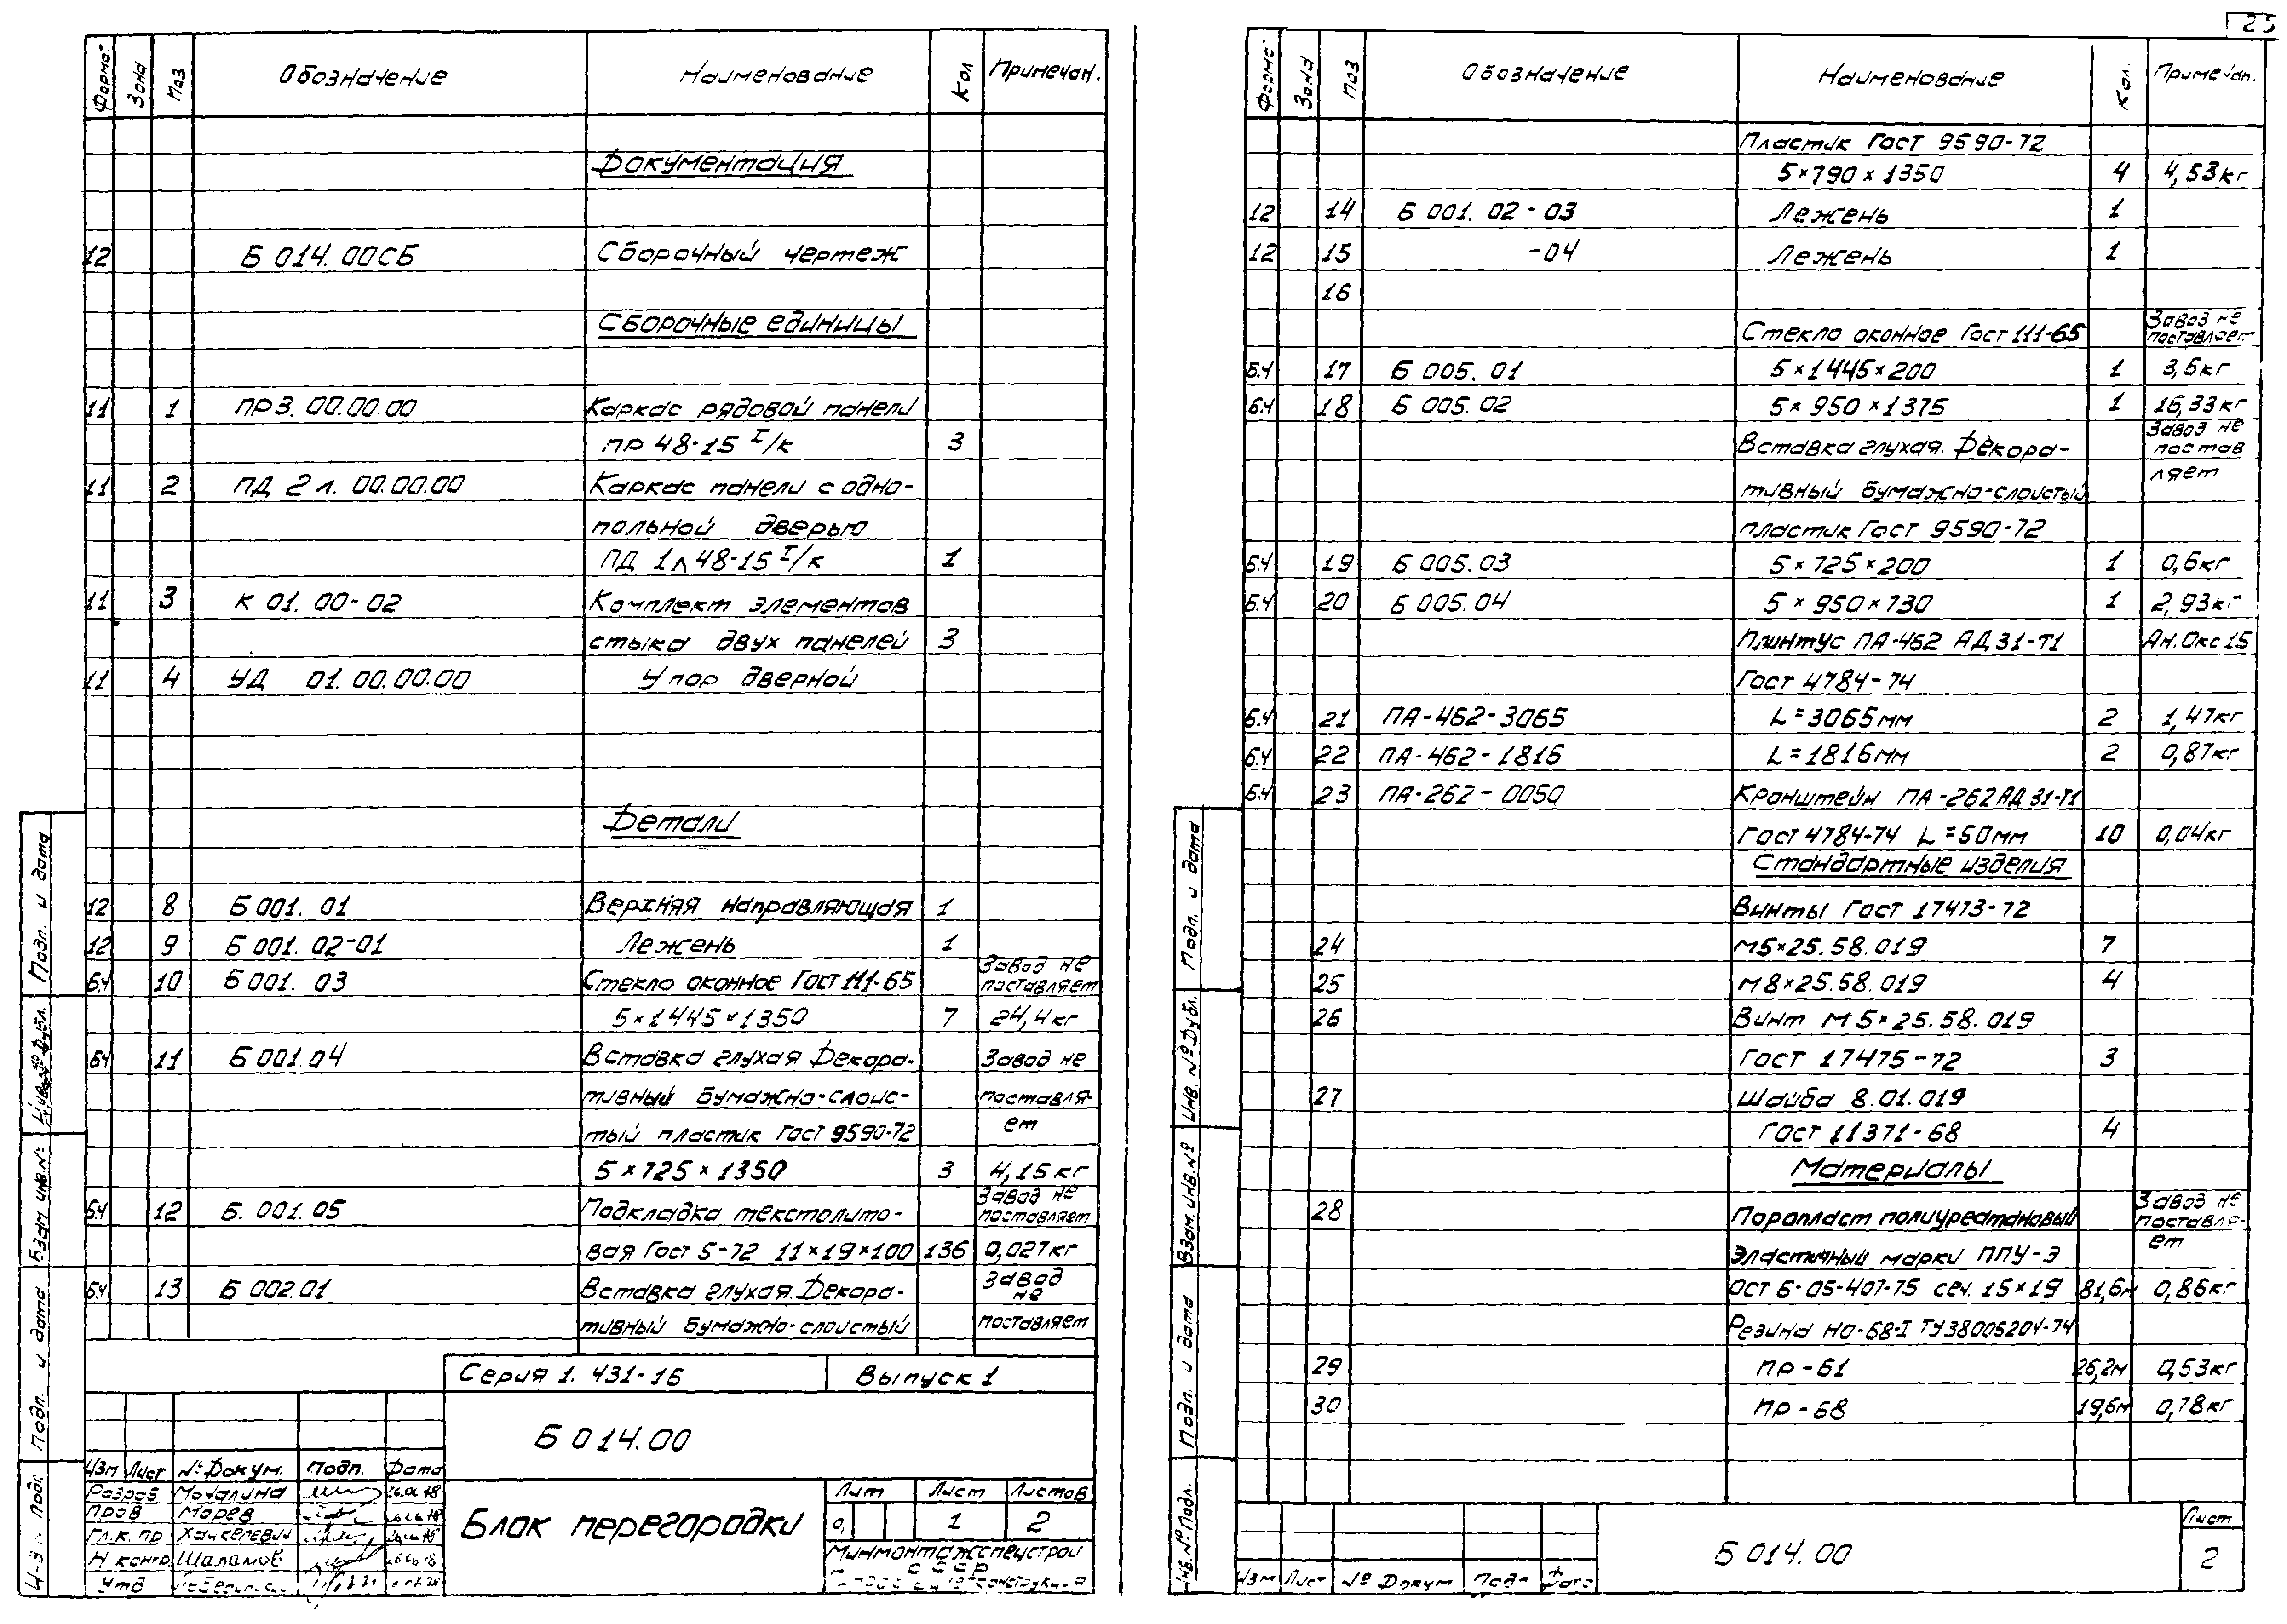 25
Форма- Зона Поз Обозначение Наименование Кол Примечан.
Документация
12 Б 014. 00СБ Сборочный чертеж
Сборочные единицы
11 1 ПР3. 00.00.00 Каркас рядовой панели
ПР 48-15 I/к 3
11 2 ПД 2л. 00.00.00 Каркас панели с одно-
польной дверью
ПД 1л 48-15 I/к 1
11 3 К 01. 00-02 Комплект элементов
стыка двух панелей 3
11 4 УД 01. 00.00.00 Упор дверной
Детали
12 8 Б 001. 01 Верхняя направляющая 1
12 9 Б 001. 02-01 Лежень 1
Б4 10 Б 001. 03 Стекло оконное Гост 111-65 Завод не поставляет
5×1445×1350 7 24,4кг
Б4 11 Б 001.04 Вставка глухая Декора- Завод не
тивный бумажно-слоис- поставля-
тый пластик Гост 9590-72 ет
5×725×1350 3 4,15 кг
Б4 12 Б. 001.05 Подкладка текстолито- Завод не поставляет
вая Гост 5-72 11×19×100 136 0,027кг
Б4 13 Б 002.01 Вставка глухая. Декора- Завод не
тивный бумажно-слоистый поставляет
Серия 1. 431-16 Выпуск 1
Б 014.00
Изм. Лист № Докум. Подп. Дата
Разраб Мочалина
Пров Морев
Гл.к. пр Хацкелевич
Н контр Шаламов
Утв
Блок перегородки
Лит Лист Листов
0, 1 2
Минмонтажспецстрой
СССР
Подп. и дата
Инв. № Дубл.
Взам инв. №
Подп. и дата
подл.
Форма- Зона Поз Обозначение Наименование Кол. Примечан.
Пластик Гост 9590-72
5×790×1350 4 4,53кг
12 14 Б 001. 02-03 Лежень 1
12 15 -04 Лежень 1
16
Стекло оконное Гост 111-65 Завод не поставляет
Б4 17 Б 005. 01 5×1445×200 1 3,6кг
Б4 18 Б 005. 02 5×950×1375 1 16,33кг
Вставка глухая. Декора- Завод не постав
тивный бумажно-слоистый ляет
пластик Гост 9590-72
Б4 19 Б 005.03 5×725×200 1 0,6кг
Б4 20 Б 005.04 5×950×730 1 2,93кг
Плинтус ПА-462 АД31-Т1 Ан. Окс 15
Гост 4784-74
Б4 21 ПА-462-3065 L=3065мм 2 1,47кг
Б4 22 ПА-462-1816 L=1816мм 2 0,87кг
Б4 23 ПА-262-0050 Кронштейн ПА-262 АД 31-Т1
Гост 4784-74 L=50мм 10 0,04кг
Стандартные изделия
Винты Гост 17473-72
24 М5×25.58.019 7
25 М8×25.58.019 4
26 Винт М5×25.58.019
Гост 17475-72 3
27 Шайба 8.01.019
Гост 11371-68 4
Материалы
28 Поропласт полиуретановый Завод не поставля-
эластичный марки ППУ-Э ет
Ост 6-05-407-75 сеч. 15×19 81,6м 0,86кг
Резина НО-68-I ТУ38005204-74
29 ПР-61 26,2м 0,53кг
30 ПР-68 19,6м 0,78кг
Изм Лист № Докум Подп Дата
Б 014.00
Лист
2
Подп. и дата
Инв. № Дубл.
Взам. инв. №
Подп. и дата
Инв. № Подл.